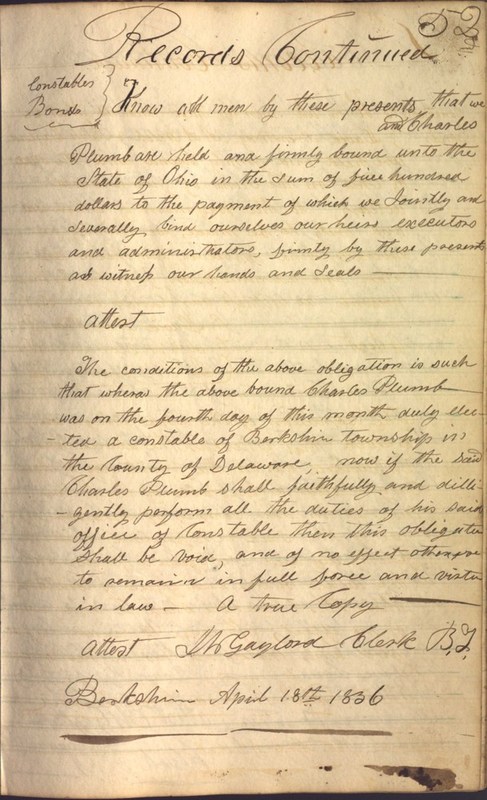 Records Continued
Constables
Bonds
Know all men by these presents that we
and Charles
Plumb are held and firmly bound unto the
State of Ohio in the sum of five hundred
dollars to the payment of which we Jointly and
severally bind ourselves our heirs executors
and administrators, firmly by these presents
as witness our hands and seals
attest
The conditions of the above obligation is such
that wheras the above bound Charles Plumb
was on the fourth day of this month duly elec-
-ted a constable of Berkshire township in
the County of Delaware, now if the said
Charles Plumb shall faithfully and dilli-
-gently perform all the duties of his said
office of Constable then this obligation
shall be void, and of no effect otherwise
to remain in full force and virtue
in law - A true Copy
attest Gaylord Clerk B.T.
Berkshire April 18th 1836